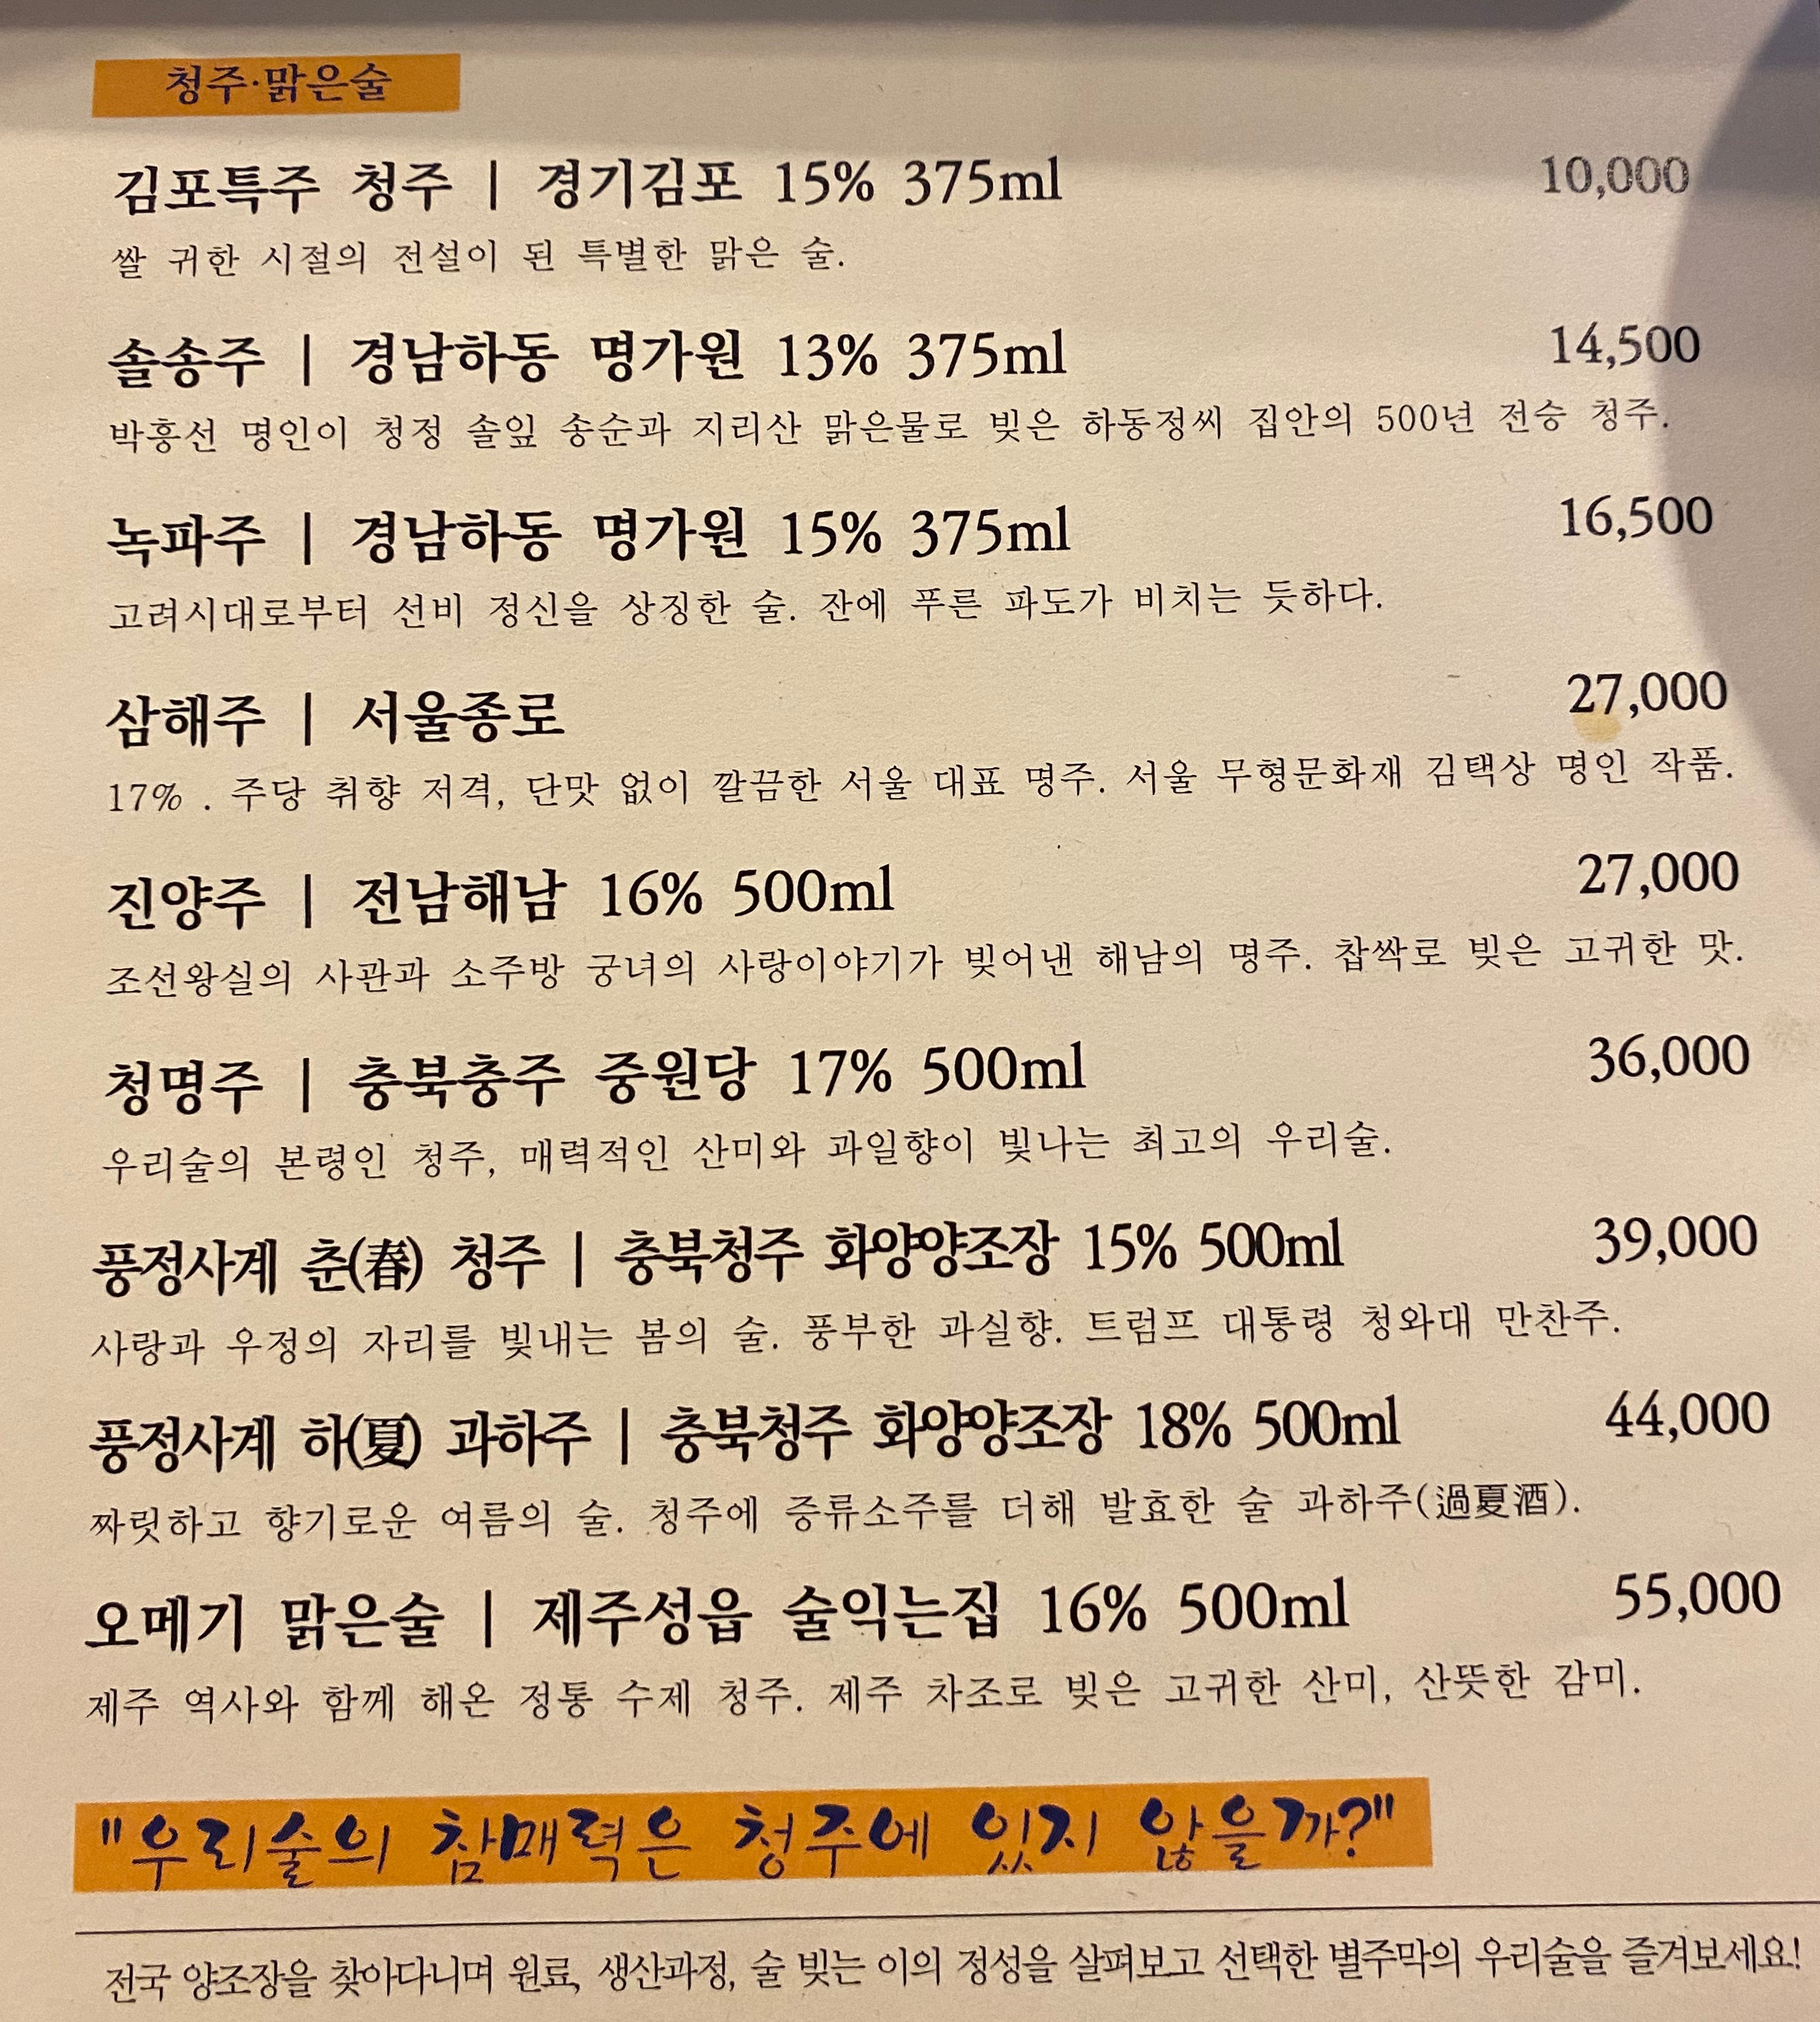 청주·맑은술
김포특주 청주 | 경기김포 15% 375ml 10,000
쌀 귀한 시절의 전설이 된 특별한 맑은 술.
솔송주 | 경남하동 명가원 13% 375ml 14,500
박흥선 명인이 청정 솔잎 송순과 지리산 맑은물로 빚은 하동정씨 집안의 500년 전승 청주.
녹파주 | 경남하동 명가원 15% 375ml 16,500
고려시대로부터 선비 정신을 상징한 술. 잔에 푸른 파도가 비치는 듯하다.
삼해주 | 서울종로 27,000
17% . 주당 취향 저격, 단맛 없이 깔끔한 서울 대표 명주. 서울 무형문화재 김택상 명인 작품.
진양주 | 전남해남 16% 500ml 27,000
조선왕실의 사관과 소주방 궁녀의 사랑이야기가 빚어낸 해남의 명주. 찹싹로 빚은 고귀한 맛.
청명주 | 충북충주 중원당 17% 500ml 36,000
우리술의 본령인 청주, 매력적인 산미와 과일향이 빛나는 최고의 우리술.
풍정사계 춘(春) 청주 | 충북청주 화양양조장 15% 500ml 39,000
사랑과 우정의 자리를 빛내는 봄의 술. 풍부한 과실향. 트럼프 대통령 청와대 만찬주.
풍정사계 하(夏) 과하주 | 충북청주 화양양조장 18% 500ml 44,000
짜릿하고 향기로운 여름의 술. 청주에 증류소주를 더해 발효한 술 과하주(過夏酒).
오메기 맑은술 | 제주성읍 술익는집 16% 500ml 55,000
제주 역사와 함께 해온 정통 수제 청주. 제주 차조로 빚은 고귀한 산미, 산뜻한 감미.
"우리술의 참매력은 청주에 있지 않을까?"
전국 양조장을 찾아다니며 원료, 생산과정, 술 빚는 이의 정성을 살펴보고 선택한 별주막의 우리술을 즐겨보세요!